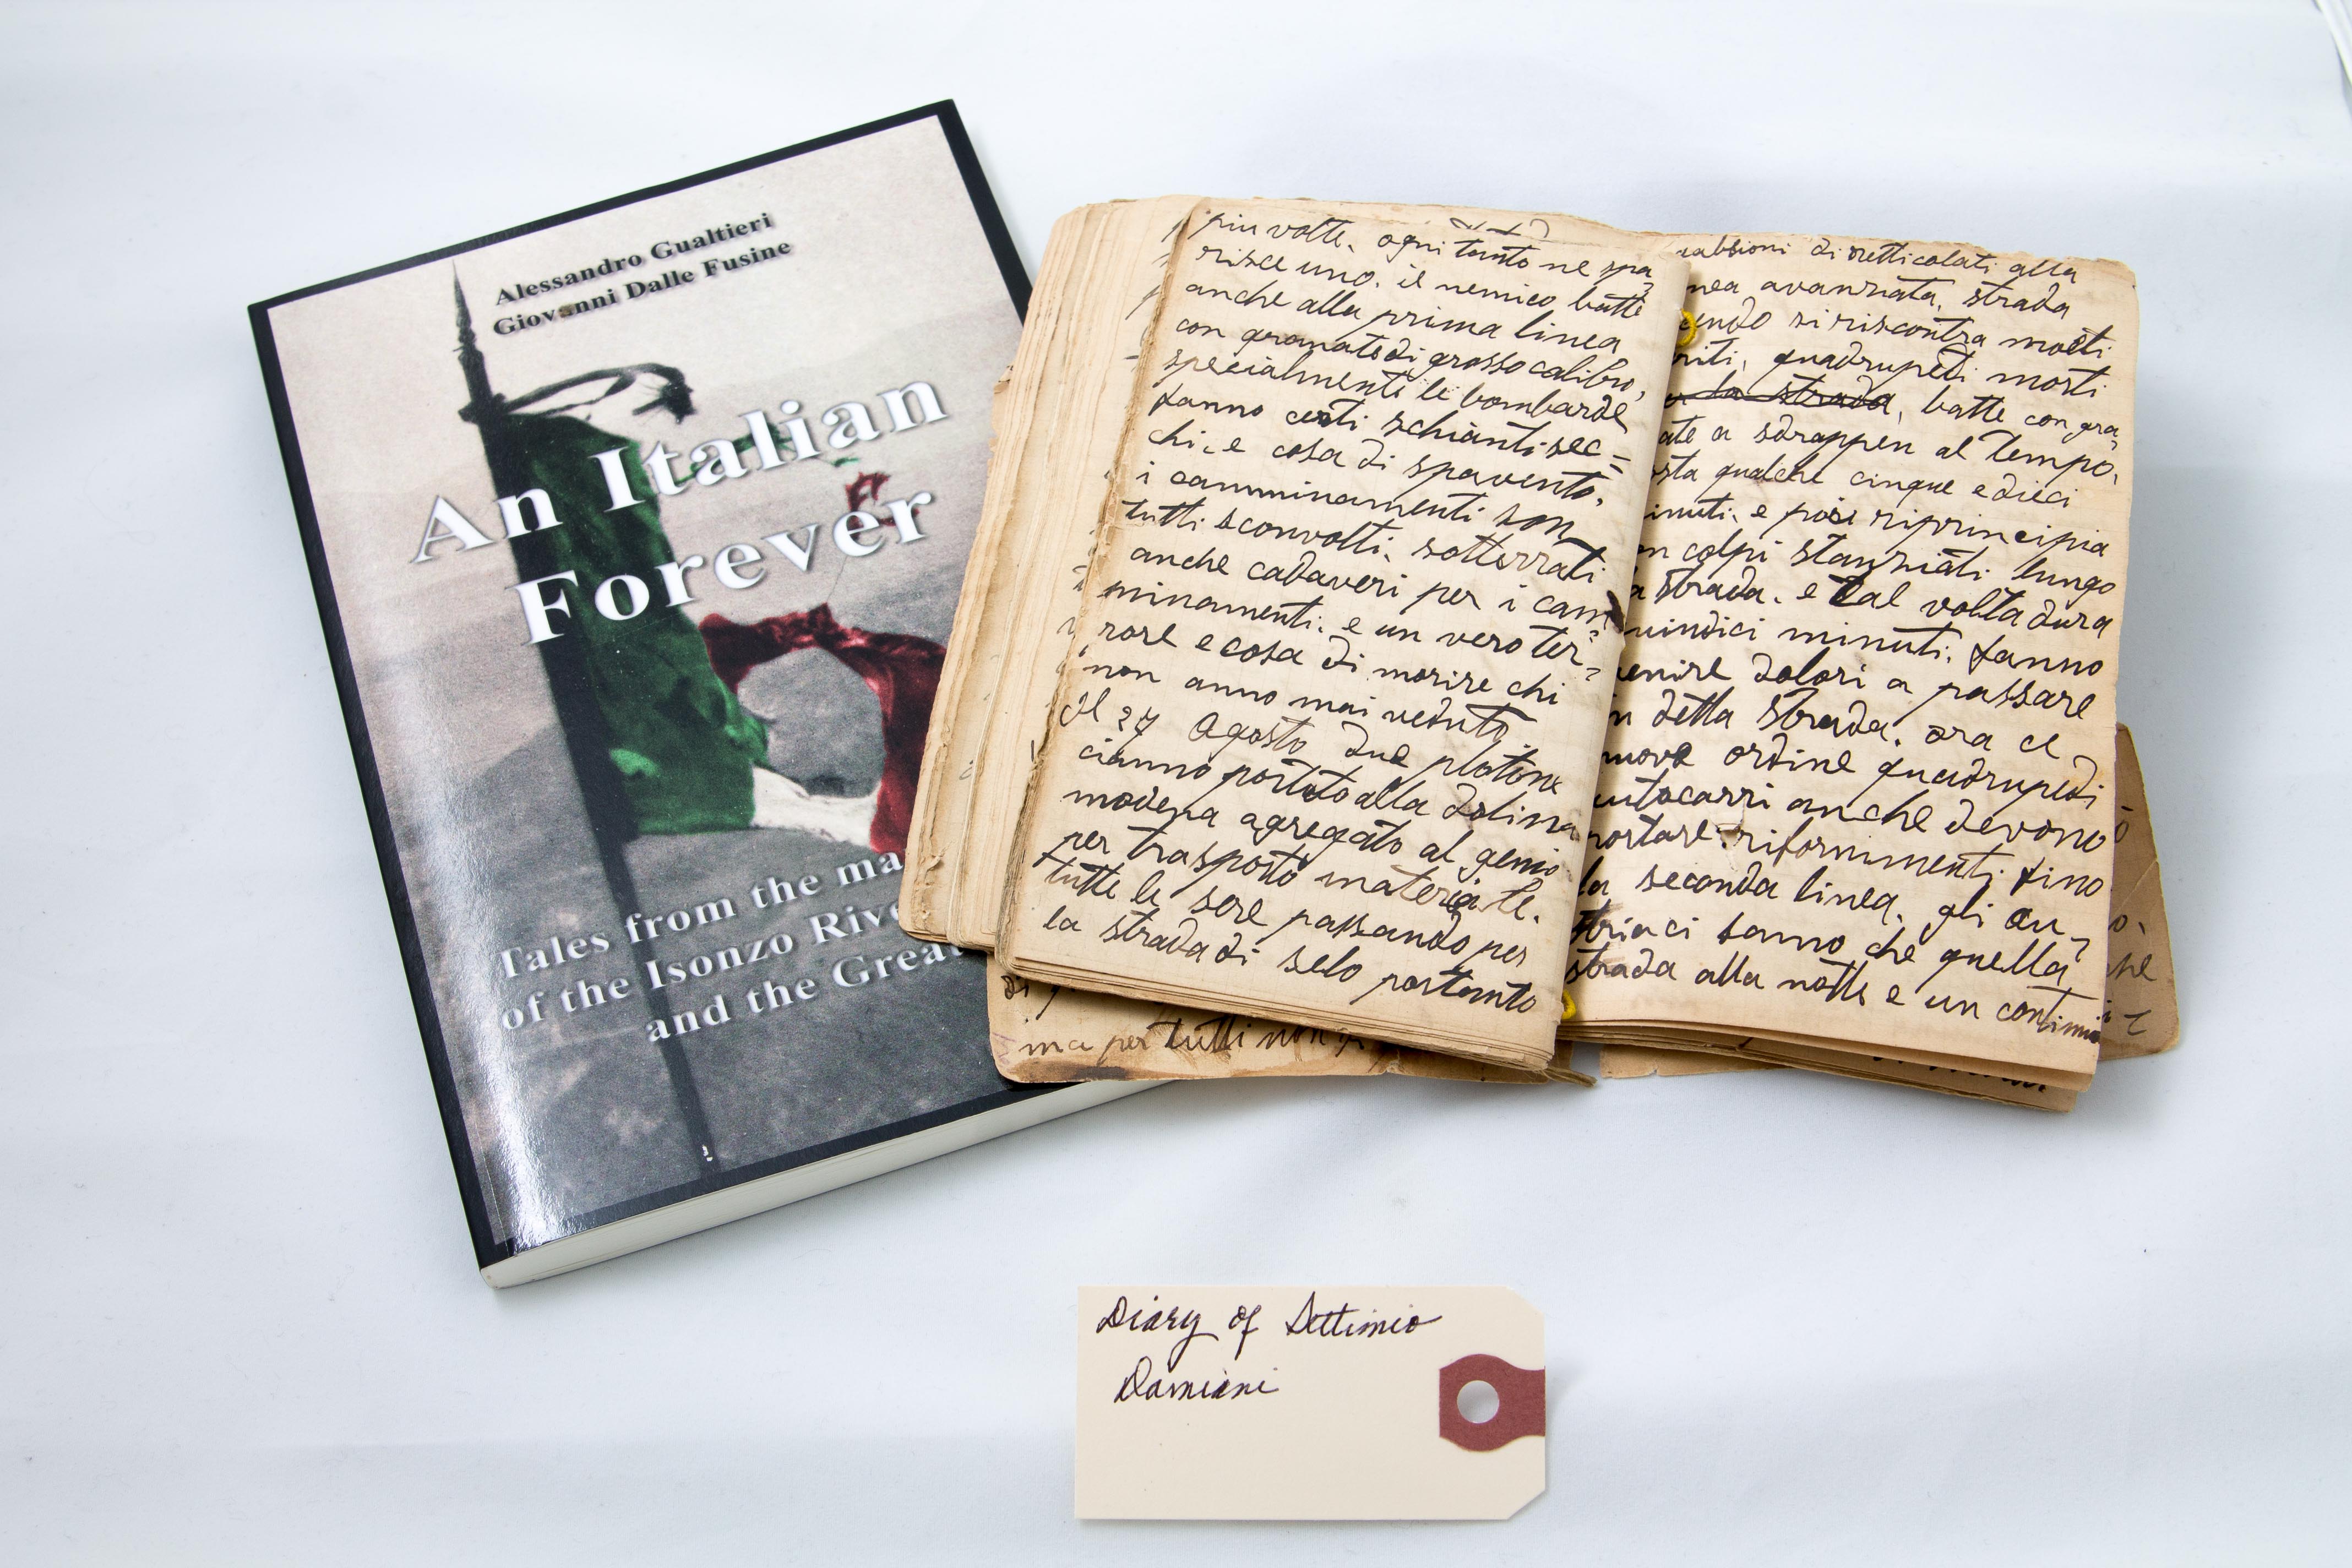 Alessandro Gualtieri
Giovanni Dalle Fusine
An Italian
Forever
Tales from the ma
of the Isonzo Rive
and the Great
piu volte. ogni tanto ne spa
risce uno. il nemico batte
anche alla prima linea
con granate di grosso calibro,
specialmente le bombarde
fanno certi schianti sec=
chi, e cosa di spavento,
i camminamenti son
tutti sconvolti, sotterrati
anche cadaveri per i cam
minamenti. e un vero ter=
rore e cosa di morire chi
non anno mai veduto.
Il 27 Agosto due plotone
cianno portato alla dolina
modena agregato al genio
per trasporto materiale.
tutte le sere passando per
la strada di selo portanto
di
ma per tutti non
di retticolati alla
nea avanzata. strada
endo si riscontra molti
riti, quadrupedi morti
la strada, batte con gra
ate a sdrappen al tempo,
osta qualche cinque e dieci
inuti, e poi riprincipia
on colpi stanziati lungo
a strada. e tal volta dura
uindici minuti. fanno
venire dolori a passare
n detta strada. ora ce
nuove ordine quadrupedi
utocarri anche devono
portare rifornimenti fino
la seconda linea. gli au=
striaci sanno che quella
strada alla notte e un continuo
Diary of Settimio
Damiani